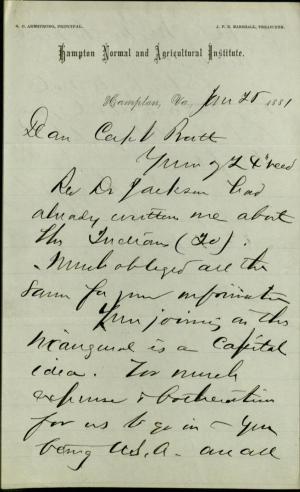 S. C. ARMSTRONG, PRINCIPAL.
J. F. B. MARSHALL, TREASURER.
Hampton Normal and Agricultural Institute.
Hampton, Va., Jan 25 1881
Dear Capt Pratt
Yours of 24 rec'd
Rev Dr Jackson had
already written me about
the Indians (20).
Much obliged all the
same for your information
Your joining in the
inaugural is a capital
idea. Too much
expense & botheration
for us to go in - You
being U.S.A. are all